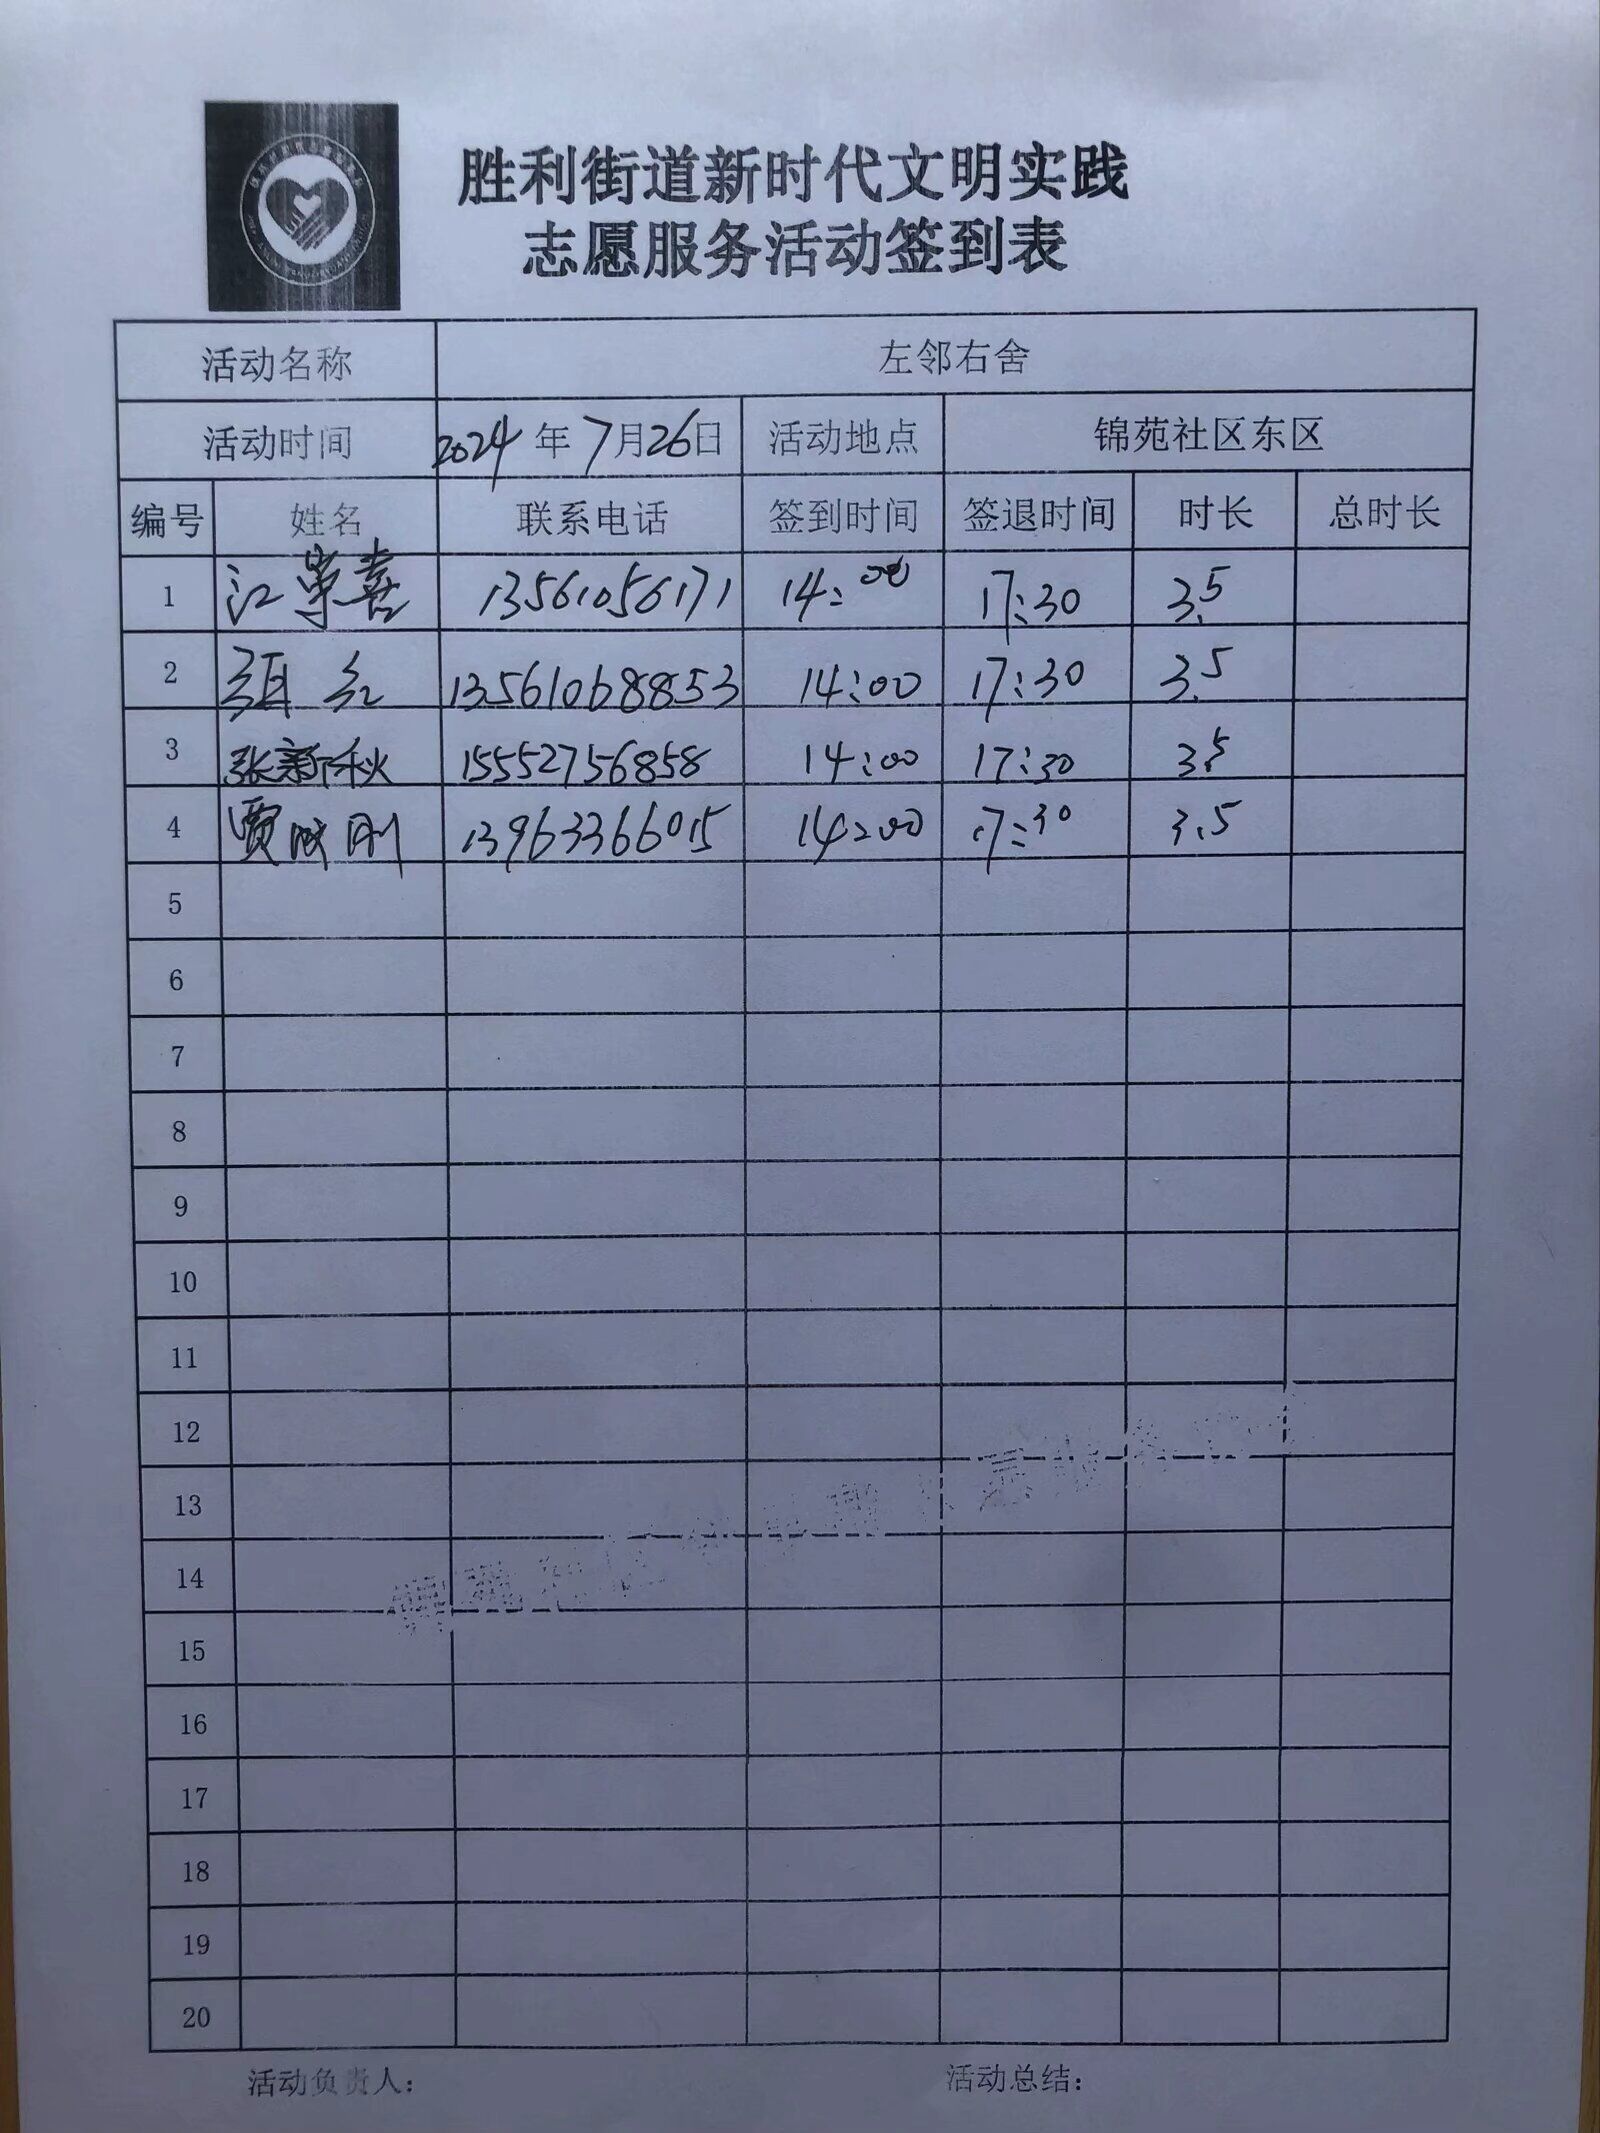 胜利街道新时代文明实践
志愿服务活动签到表
活动名称 左邻右舍
活动时间 2024年7月26日 活动地点 锦苑社区东区
编号 姓名 联系电话 签到时间 签退时间 时长 总时长
1 江崇喜 13561056171 14:00 17:30 3.5
2 红 13561068853 14:00 17:30 3.5
3 张新秋 15552756858 14:00 17:30 3.5
4 贾成刚 13963366015 14:00 17:30 3.5
5
6
7
8
9
10
11
12
13
14
15
16
17
18
19
20
活动负责人: 活动总结: